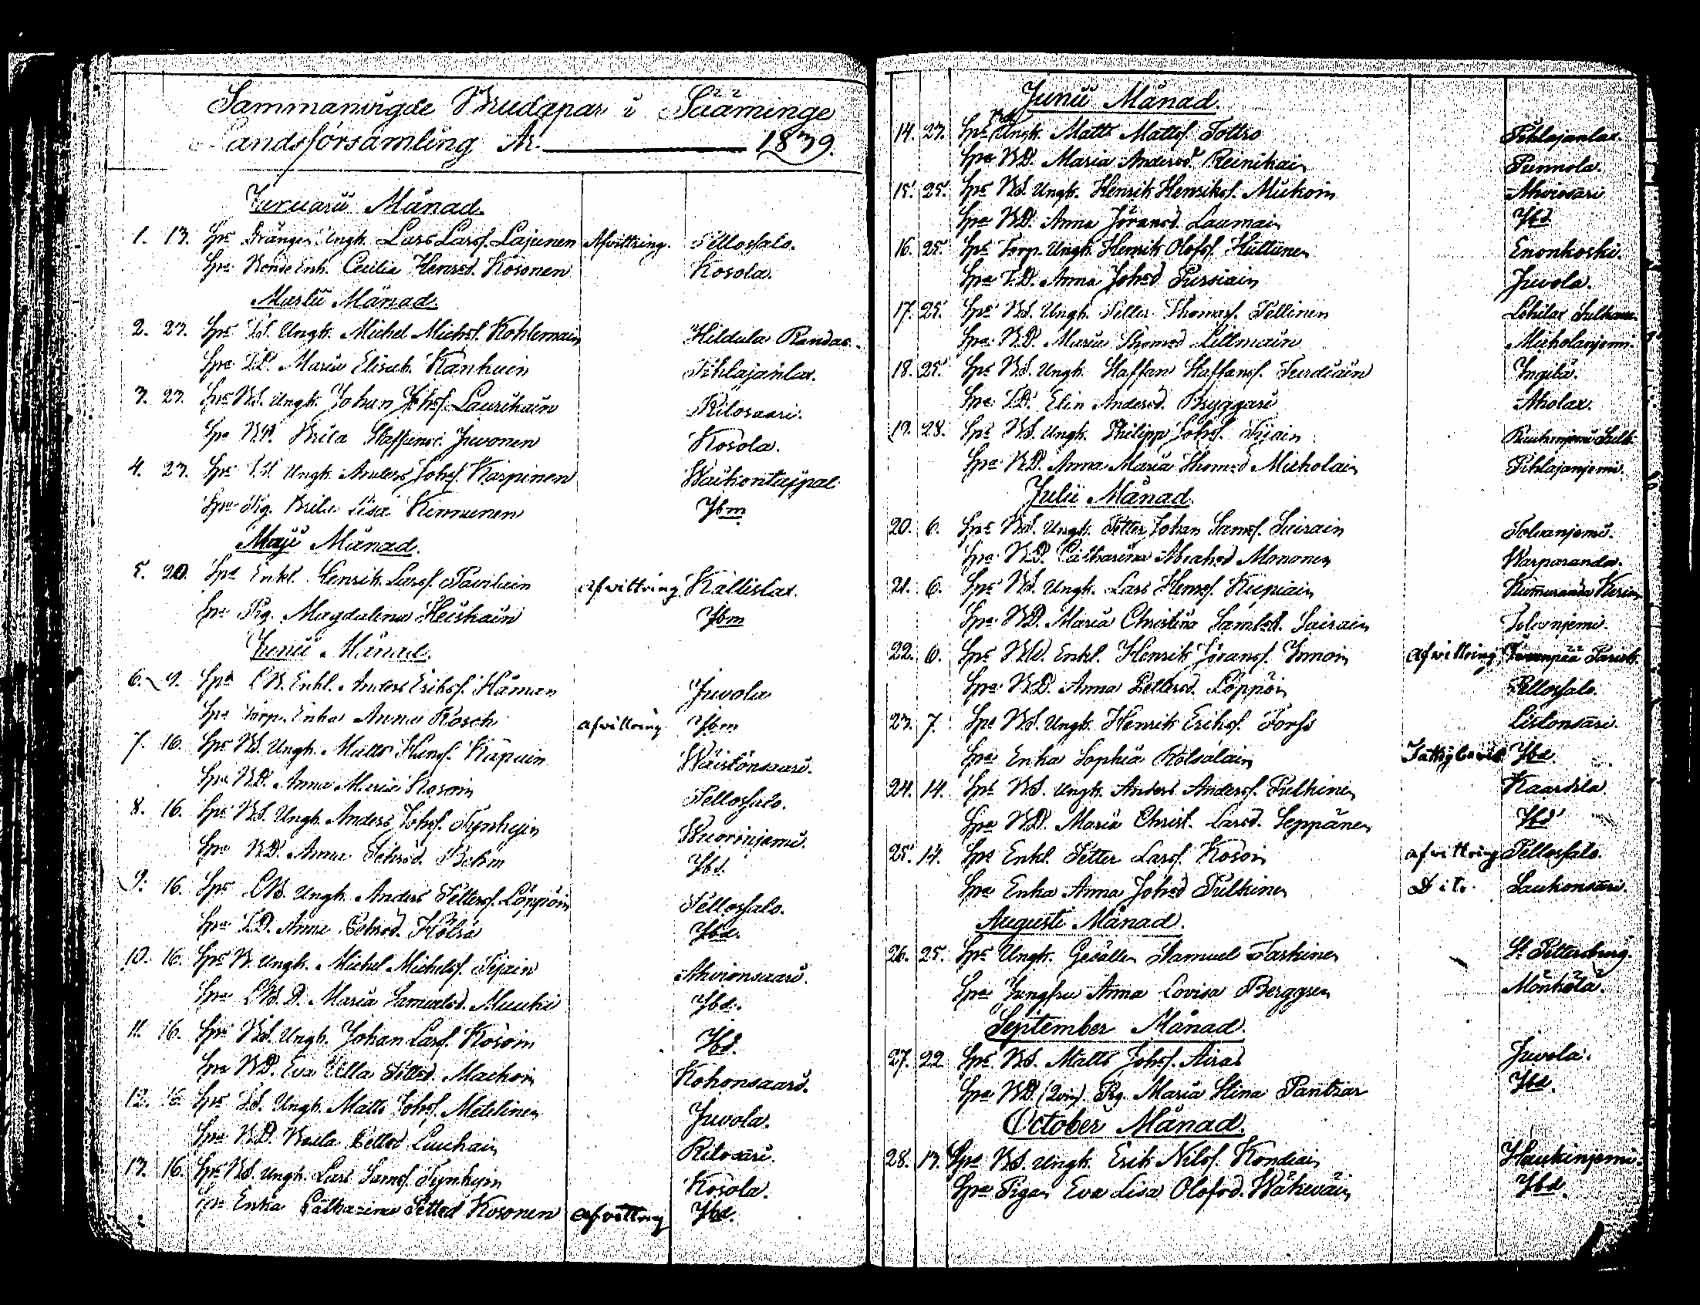 Sammanvigde Brudapar i Sääminge
Landsförsamling År. 1839.
Januarii Månad.
1. 13. Spr Dräng. Ungk. Lars Larsf. Lajunen Afvittring. Pellossalo.
Spa Bonde Enk. Cecilia Henrsd. Kosonen Kosola.
Martii Månad.
2. 23. Spr Ld. Ungk. Michel Michsf. Kohlemain Hildula Randas.
Spa LD. Maria Elisab. Kanhuin Pihlajanlax.
3. 23. Spr Bd. Ungk. Johan Johsf. Laurikain Ritosaari.
Spa BD. Brita Staffansd. Juvonen Kosola.
4. 23. Spr Ld Ungk. Anders Johsf. Karpinen Waikontaipal
Spa Pig. Brita Lisa Kinnunen Ibm
Maji Månad.
5. 20. Spr Enkl. Henrik Larsf. Pavilain afvittring Kallislax.
Spa Pig. Magdalena Heiskain Ibm
Junii Månad.
6. 9. Spr Enkl. Anders Eriksf. Häman Juvola
Spa Torp. Enka Anna Kosch afvittring Ibm
7. 16. Spr Bd. Ungk. Matts Hensf. Käpiain Wäistönsaari.
Spa BD. Anna Maria Kosoin Pellossalo.
8. 16. Spr Bd. Ungk. Anders Johsf. Tynkyin Wuorinjemi.
Spa BD. Anna Behm Ibd.
9. 16. Spr Ungk. Anders Pettersf. Löppöin Pellossalo.
Spa LD. Anna Hölsä Ibd.
10. 16. Spr B. Ungk. Michel Michelsf. Pijain Ahvionsaari.
Spa D. Maria Samuelsd. Muuki Ibd.
11. 16. Spr Bd. Ungk. Johan Larsf. Kosoin Ibd.
Spa BD. Eva Ulla Pettersd. Machoin Kohonsaari.
12. 16. Spr Ld. Ungk. Matts Johsf. Metelinen Juvola.
Spa BD. Pettersd Luuchain Ritosari.
13. 16. Spr Bd. Ungk. Lars Samsf. Tynkyin Kosola.
Spa Enka Catharina Pettersd Kosonen afvittring Ibd.
Junii Månad.
14. 23. Spr Ungk. Matts Mattsf. Tottro Pihlajanlax.
Spa BD. Maria Andersd. Reinikain Punnola.
15. 25. Spr Bd. Ungk. Henrik Henriksf. Muhoin Ahvionsari
Spa BD. Anna Göransd. Laumain Ibd
16. 25. Spr Torp. Ungk. Henrik Olofsf. Huttunen Enonkoski.
Spa TD. Anna Johsd Pursiain Juvola.
17. 25. Spr Bd. Ungk. Petter Thomasf. Pellinen
Spa BD. Maria Thomsd Lillmain Micholanjemi.
18. 25. Spr Bd. Ungk. Staffan Staffansf. Turdiain Ingilä.
Spa LD. Elin Andersd. Bryggari Aholax.
19. 28. Spr Bd. Ungk. Philipp Johsf. Pijain
Spa BD. Anna Maria Thomsd Micholain Pihlajanjemi.
Julii Månad.
20. 6. Spr Bd. Ungk. Petter Johan Samsf. Sairain Tolvanjemi.
Spa BD. Catharina Abrahsd Mononen Warparanda.
21. 6. Spr Bd. Ungk. Lars Hensf. Kupiain
Spa BD. Maria Christina Samlsd. Sairain Tolvanjemi.
22. 6. Spr Enkl. Henrik Göransf. Immoin afvittring
Spa BD. Anna Pettersd. Löppöin Pellossalo.
23. 7. Spr Bd. Ungk. Henrik Eriksf. Forss Listonsari.
Spa Enka Sophia Kolsalain Fattigbevis Ibd.
24. 14. Spr Bd. Ungk. Anders Andersf. Pulkinen Kaartila
Spa BD. Maria Christ. Larsd. Seppänen Ibd
25. 14. Spr Enkl. Petter Larsf. Kosoin afvittring Pellossalo.
Spa Enka Anna Johsd Pulkinen Dito. Laukonsari.
Augusti Månad.
26. 25. Spr Ungk. Gesällen Samuel Taskinen St. Pettersburg.
Spa Jungfru Anna Lovisa Berggren Mönkölä.
September Månad.
27. 22 Spr Bd. Matts Johsf. Airas Juvola.
Spa BD. Pig. Maria Stina Pantzar Ibd.
October Månad.
28. 13. Spr Bd. Ungk. Erik Nilsf. Kondiain Haukinjemi.
Spa Pigan Eva Lisa Olofsd. Wäkeväin Ibd.